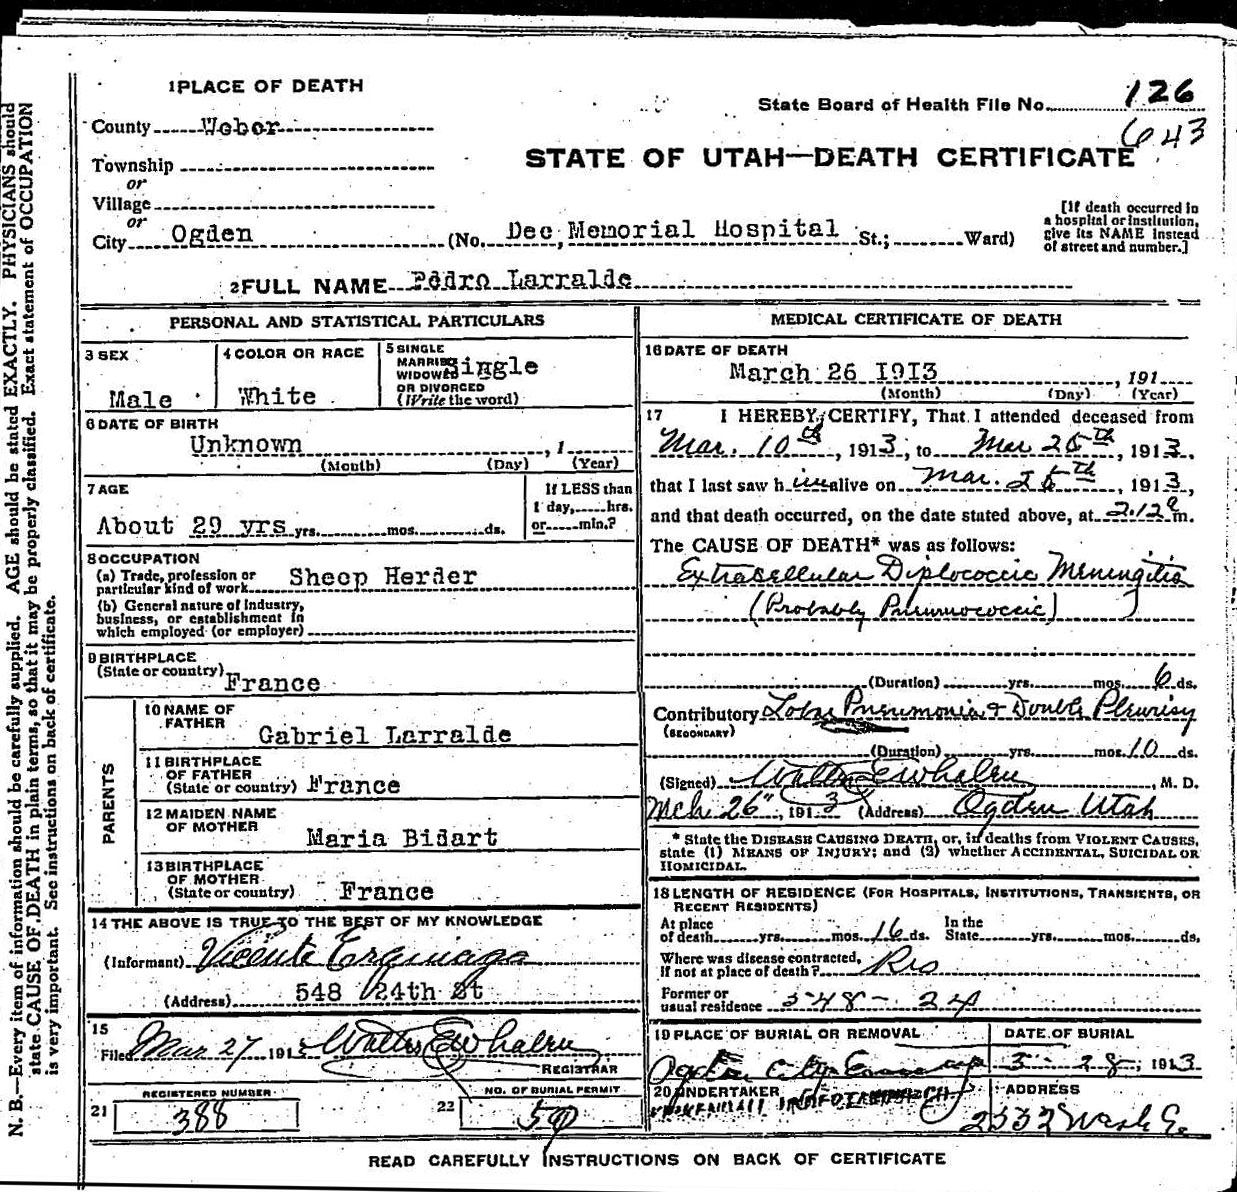 1 PLACE OF DEATH
State Board of Health File No. 126
643
County Weber
STATE OF UTAH—DEATH CERTIFICATE
Township
or
Village
or
City Ogden (No. Dee Memorial Hospital St.; Ward)
[If death occurred in
a hospital or institution,
give its NAME instead
of street and number.]
2 FULL NAME Pedro Larralde
PERSONAL AND STATISTICAL PARTICULARS
3 SEX
Male
4 COLOR OR RACE
White
5 SINGLE
MARRIED
WIDOWED
OR DIVORCED
(Write the word)
Single
6 DATE OF BIRTH
Unknown , 1
(Month) (Day) (Year)
7 AGE
About 29 yrs yrs. mos. ds.
If LESS than
1 day, hrs.
or min.?
8 OCCUPATION
(a) Trade, profession or
particular kind of work Sheep Herder
(b) General nature of Industry,
business, or establishment in
which employed (or employer)
9 BIRTHPLACE
(State or country) France
PARENTS
10 NAME OF
FATHER
Gabriel Larralde
11 BIRTHPLACE
OF FATHER
(State or country) France
12 MAIDEN NAME
OF MOTHER
Maria Bidart
13 BIRTHPLACE
OF MOTHER
(State or country) France
14 THE ABOVE IS TRUE TO THE BEST OF MY KNOWLEDGE
(Informant) Vicente
(Address) 548 24th St
15
Filed Mar 27 191 3 Walter E Whalen
REGISTRAR
REGISTERED NUMBER
21 388
NO. OF BURIAL PERMIT
22 59
MEDICAL CERTIFICATE OF DEATH
16 DATE OF DEATH
March 26 1913 , 191
(Month) (Day) (Year)
17 I HEREBY CERTIFY, That I attended deceased from
Mar. 10th , 1913, to Mar 26th , 1913,
that I last saw him alive on Mar. 26th , 1913,
and that death occurred, on the date stated above, at 2.12 a m.
The CAUSE OF DEATH* was as follows:
Extracellular Diplococcic Meningitis
(Probably Pneumococcic)
(Duration) yrs. mos. 6 ds.
Contributory Lobar Pneumonia & Double Pleurisy
(SECONDARY)
(Duration) yrs. mos. 10 ds.
(Signed) Walter E Whalen , M. D.
Mch 26" , 1913 (Address) Ogden Utah
* State the DISEASE CAUSING DEATH, or, in deaths from VIOLENT CAUSES,
state (1) MEANS OF INJURY; and (2) whether ACCIDENTAL, SUICIDAL OR
HOMICIDAL.
18 LENGTH OF RESIDENCE (FOR HOSPITALS, INSTITUTIONS, TRANSIENTS, OR
RECENT RESIDENTS)
At place
of death yrs. mos. 16 ds.
In the
State yrs. mos. ds.
Where was disease contracted,
If not at place of death? Res
Former or
usual residence 548 - 24
19 PLACE OF BURIAL OR REMOVAL
Ogden City
DATE OF BURIAL
3 - 28, 1913
20 UNDERTAKER
ADDRESS
2332 Wash
READ CAREFULLY INSTRUCTIONS ON BACK OF CERTIFICATE
N. B.—Every item of information should be carefully supplied. AGE should be stated EXACTLY. PHYSICIANS should
state CAUSE OF DEATH in plain terms, so that it may be properly classified. Exact statement of OCCUPATION
is very important. See instructions on back of certificate.